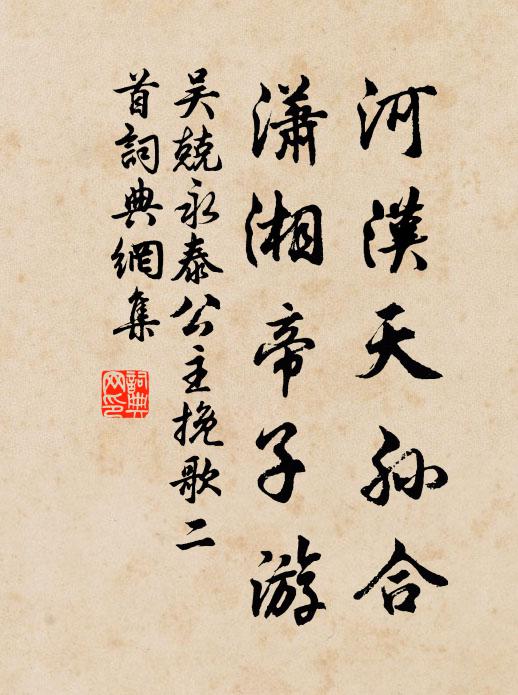 河漢天孫合
瀟湘帝子游
吴兢永泰公主挽歌二
首詞典網集
詞典
网印